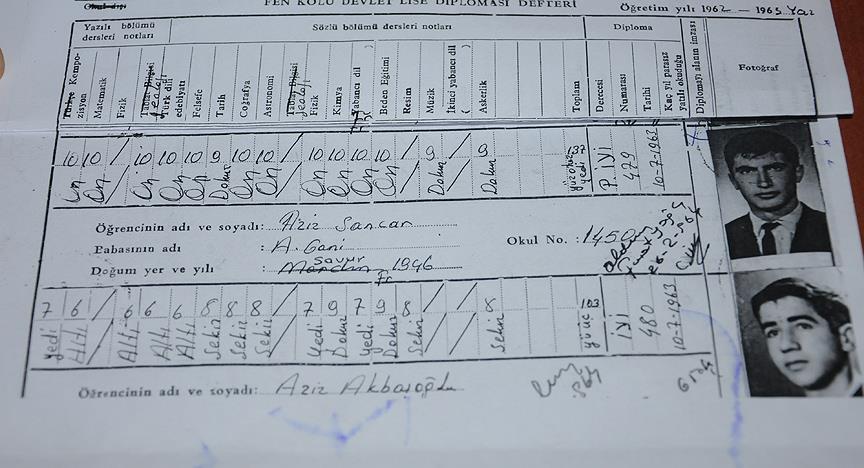 FEN KOLU DEVLET LİSE DİPLOMASI DEFTERİ
Öğretim yılı 1962 — 1963 Yaz
Yazılı bölümü dersleri notları
Sözlü bölümü dersleri notları
Diploma
Türkçe Kompozisyon
Matematik
Fizik
Türk dili edebiyatı
Felsefe
Tarih
Coğrafya
Astronomi
Tabiat Bilgisi
Jeoloji
Fizik
Kimya
Yabancı dil
Beden Eğitimi
Resim
Müzik
İkinci yabancı dil ( )
Askerlik
Toplam
Derecesi
Numarası
Tarihi
Kaç yıl parasız yatılı okuduğu
Diplomayı alanın imzası
Fotoğraf
10 10 / 10 10 10 9 10 10 / 10 10 10 10 / 9 / 9 137 P. İYİ 479 10-7-1963
On On On On On Dokuz On On On On On On Dokuz Dokuz
Öğrencinin adı ve soyadı: Aziz Sancar
Babasının adı : A. Gani
Okul No. : 1450
Doğum yer ve yılı : Mardin Savur 1946
7 6 / 6 6 6 8 8 8 / 7 9 7 9 8 / / 8 103 İYİ 480 10-7-1963
Yedi Altı Altı Altı Altı Sekiz Sekiz Sekiz Yedi Dokuz Yedi Dokuz Sekiz Sekiz yüz üç
Öğrencinin adı ve soyadı: Aziz Akbaşoğlu